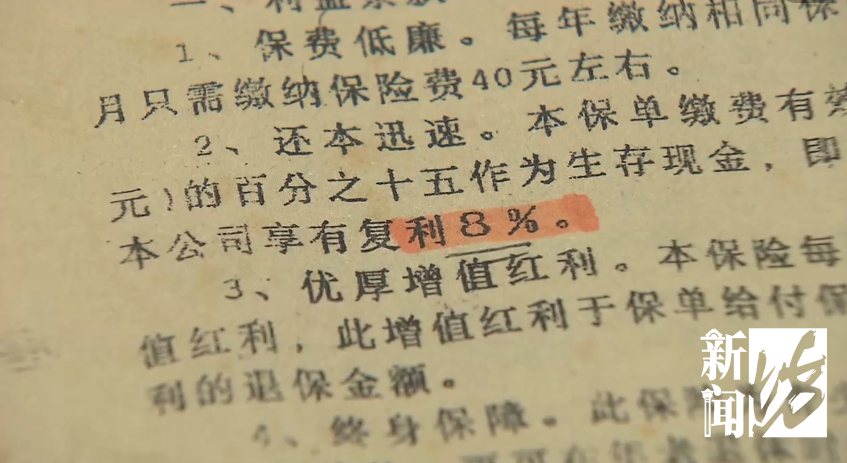 1、保费低廉。每年缴纳相同保
月只需缴纳保险费40元左右。
2、还本迅速。本保单缴费有效
元)的百分之十五作为生存现金，即
本公司享有复利8%。
3、优厚增值红利。本保险每
值红利，此增值红利于保单给付保
利的退保金额。
4、终身保障。此保险
新闻